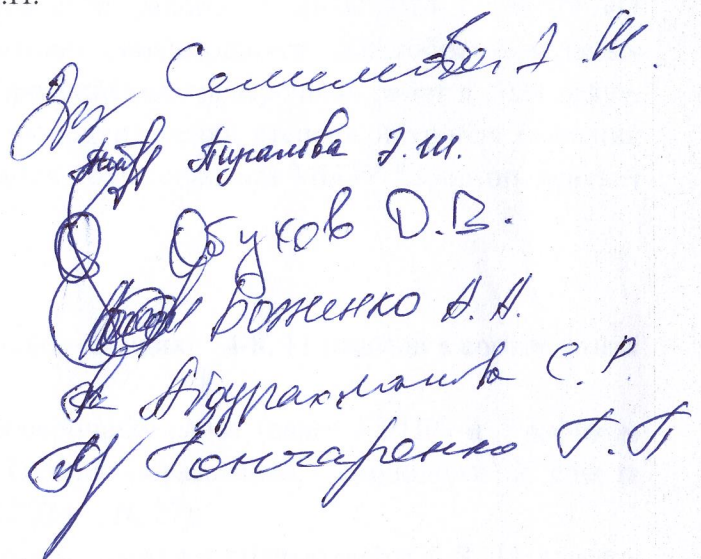 .П.
Селимова Э.Ш.
Пиралова Э.Ш.
Обухов Д.В.
Боженко А.А.
Абдурахманова С.Р.
Гончаренко Г.П